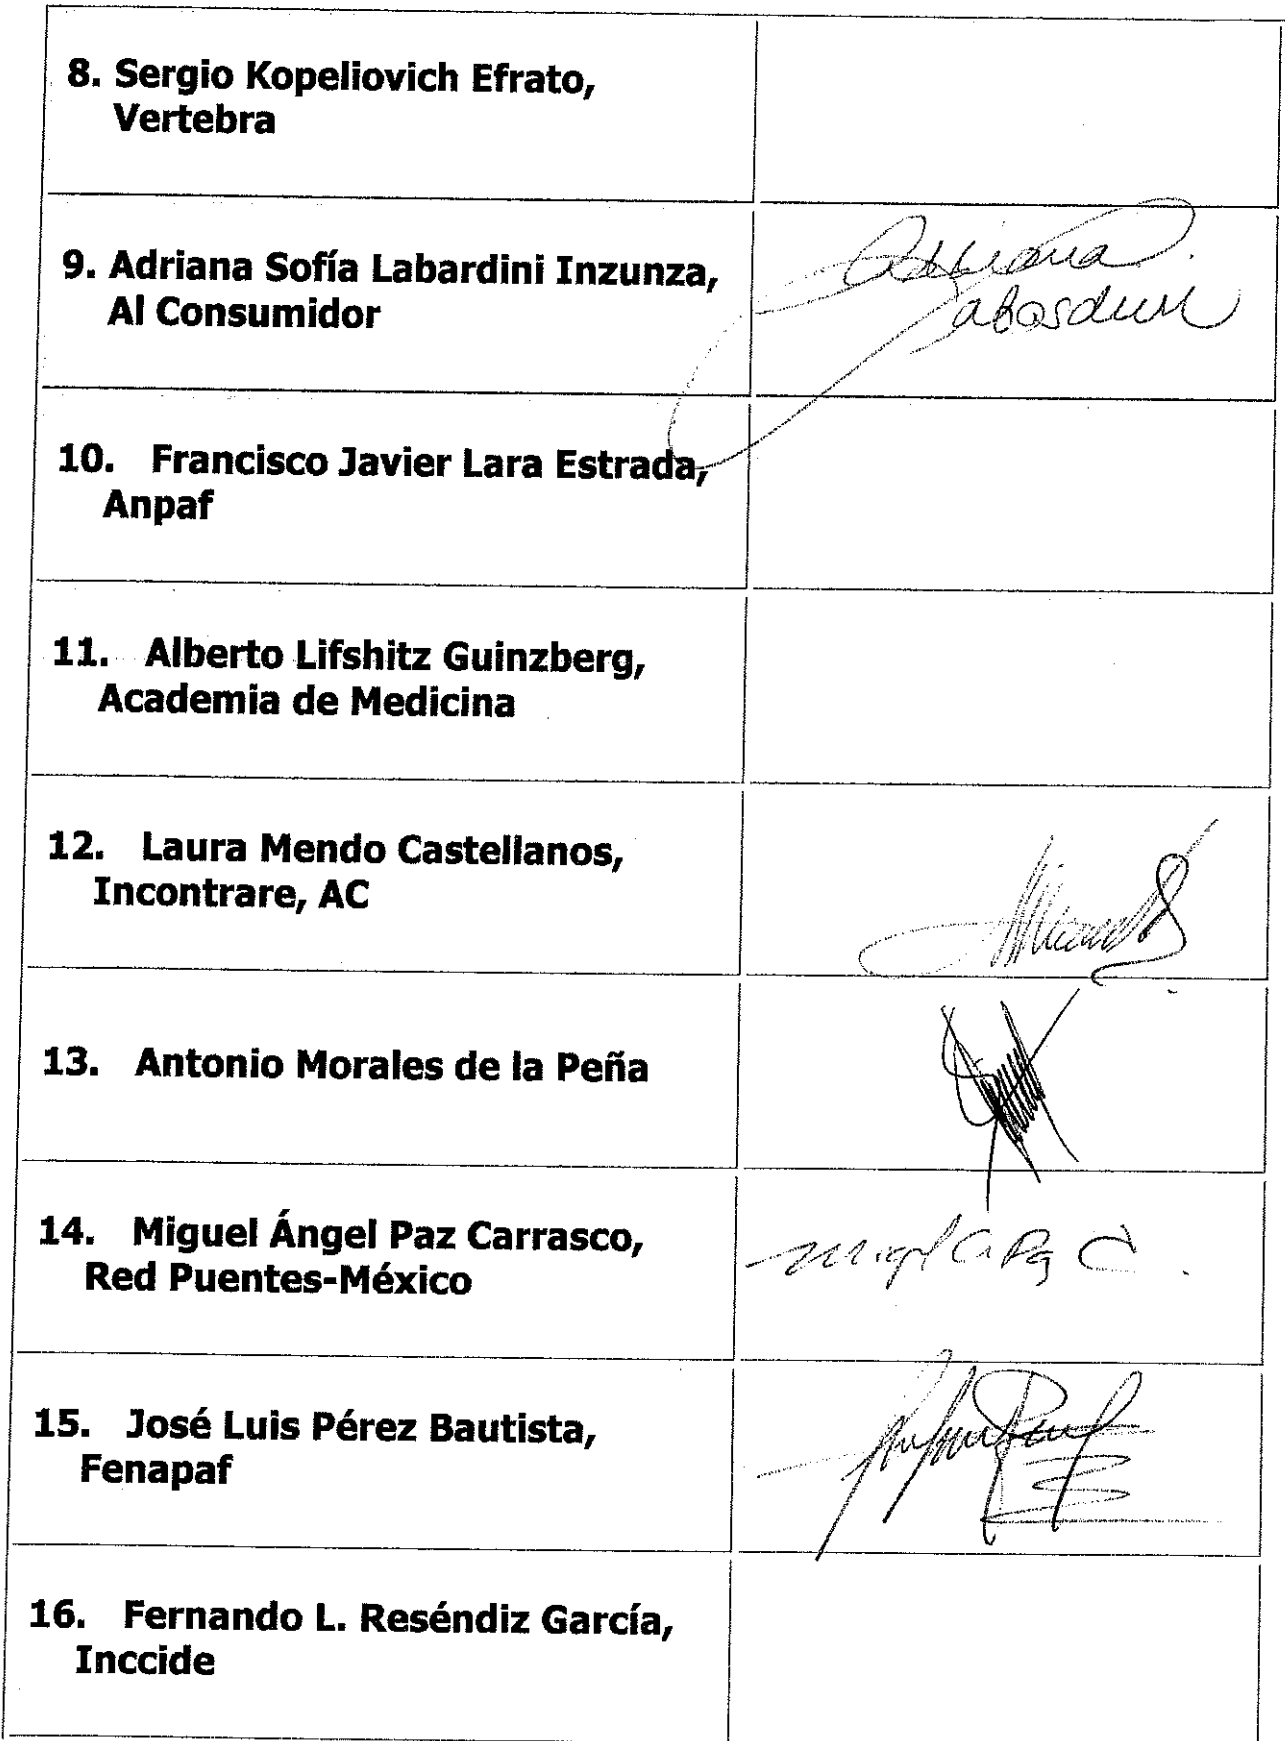 8. Sergio Kopeliovich Efrato,
Vertebra
9. Adriana Sofía Labardini Inzunza,
Al Consumidor
Adriana
10. Francisco Javier Lara Estrada,
Anpaf
11. Alberto Lifshitz Guinzberg,
Academia de Medicina
12. Laura Mendo Castellanos,
Incontrare, AC
13. Antonio Morales de la Peña
14. Miguel Ángel Paz Carrasco,
Red Puentes-México
15. José Luis Pérez Bautista,
Fenapaf
16. Fernando L. Reséndiz García,
Inccide